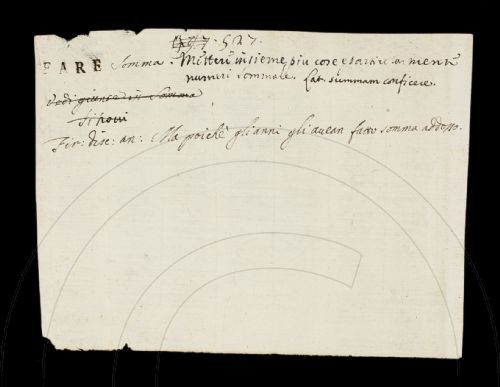 527.
FARE Somma. Mettere insieme più cose
numeri sommare. Lat. summam conficere.
Vedi giunse in Somma
Fir: disc: an: Ma poichè gli anni gli avean fatto somma addosso.